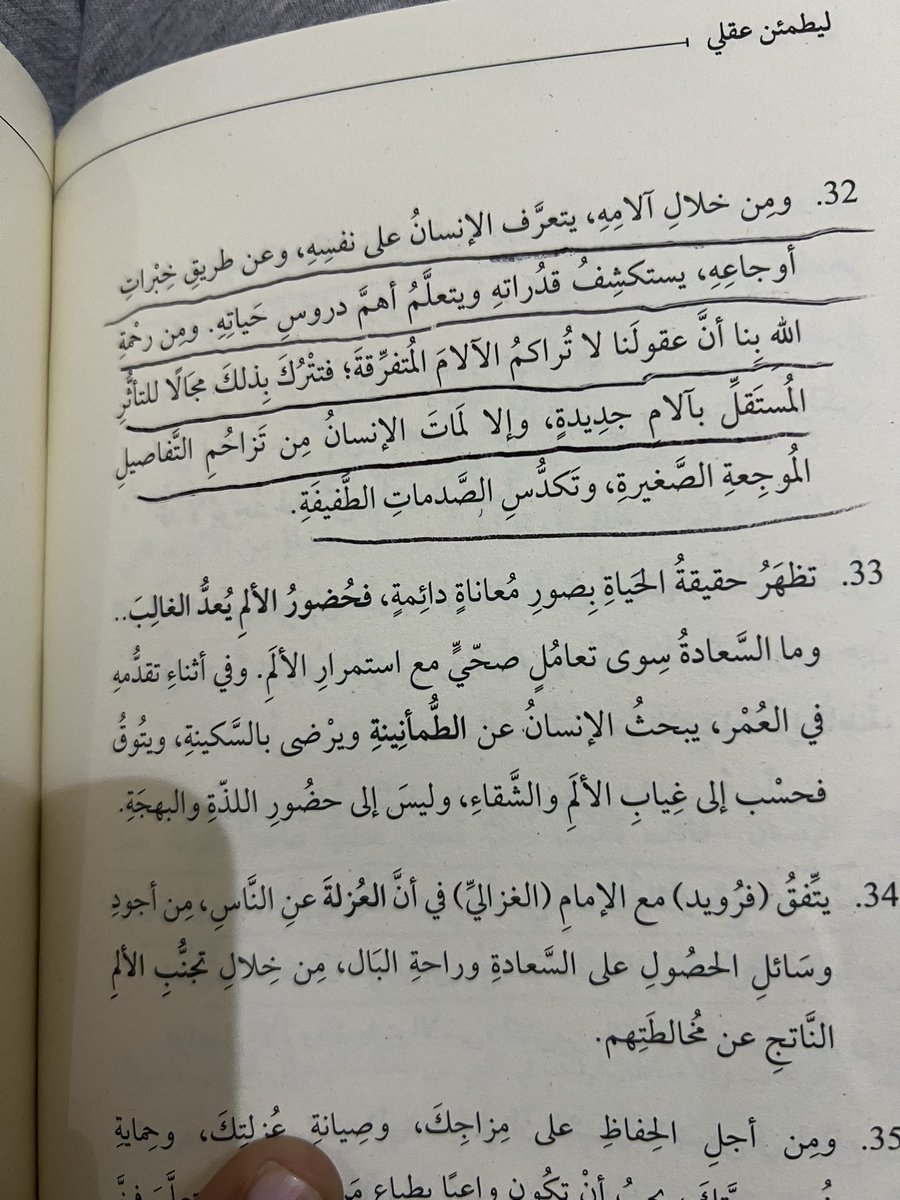 ليطمئن عقلي
32. ومِن خلالِ آلامِهِ، يتعرَّف الإنسانُ على نفسِهِ، وعن طريقِ خِبْراتِ
أوجاعِهِ، يستكشِفُ قدُراتهِ ويتعلَّمُ أهمَّ دروسِ حَياتِهِ. ومِن رحْمةِ
الله بِنا أنَّ عقولَنا لا تُراكمُ الآلامَ المُتفرِّقةَ؛ فتتْرُكَ بِذلكَ مجَالًا للتأثُّرِ
المُستَقلِّ بآلامٍ جدِيدةٍ، وإلا لمَاتَ الإنسانُ مِن تَزاحُمِ التَّفاصيلِ
المُوجِعةِ الصَّغيرةِ، وتَكدُّسِ الصَّدماتِ الطَّفيفَةِ.
33. تظهَرُ حقيقةُ الحَياةِ بِصورِ مُعاناةٍ دائِمةٍ، فحُضورُ الألمِ يُعدُّ الغالِبَ..
وما السَّعادةُ سِوى تعامُلٍ صحّيٍّ مع استمرارِ الألَمِ. وفي أثناءِ تقدُّمهِ
في العُمْر، يبحثُ الإنسانُ عن الطُّمأنِينةِ ويرْضى بالسَّكينةِ، ويتُوقُ
فحسْب إلى غِيابِ الألَمِ والشَّقاءِ، وليسَ إلى حضُورِ اللذّةِ والبهجَةِ.
34. يتِّفقُ (فرُويد) مع الإمامِ (الغزاليِّ) في أنَّ العُزلةَ عنِ النَّاسِ، مِن أجودِ
وسَائلِ الحصُولِ على السَّعادةِ وراحةِ البَال، مِن خِلالِ تجنُّبِ الألمِ
النَّاتجِ عن مخُالطَتِهم.
35. ومِن أجلِ الحِفاظِ على مِزاجِكَ، وصِيانةِ عُزلتِكَ، وحِمايةِ
أنْ تكُون واعيًا بطباعِ